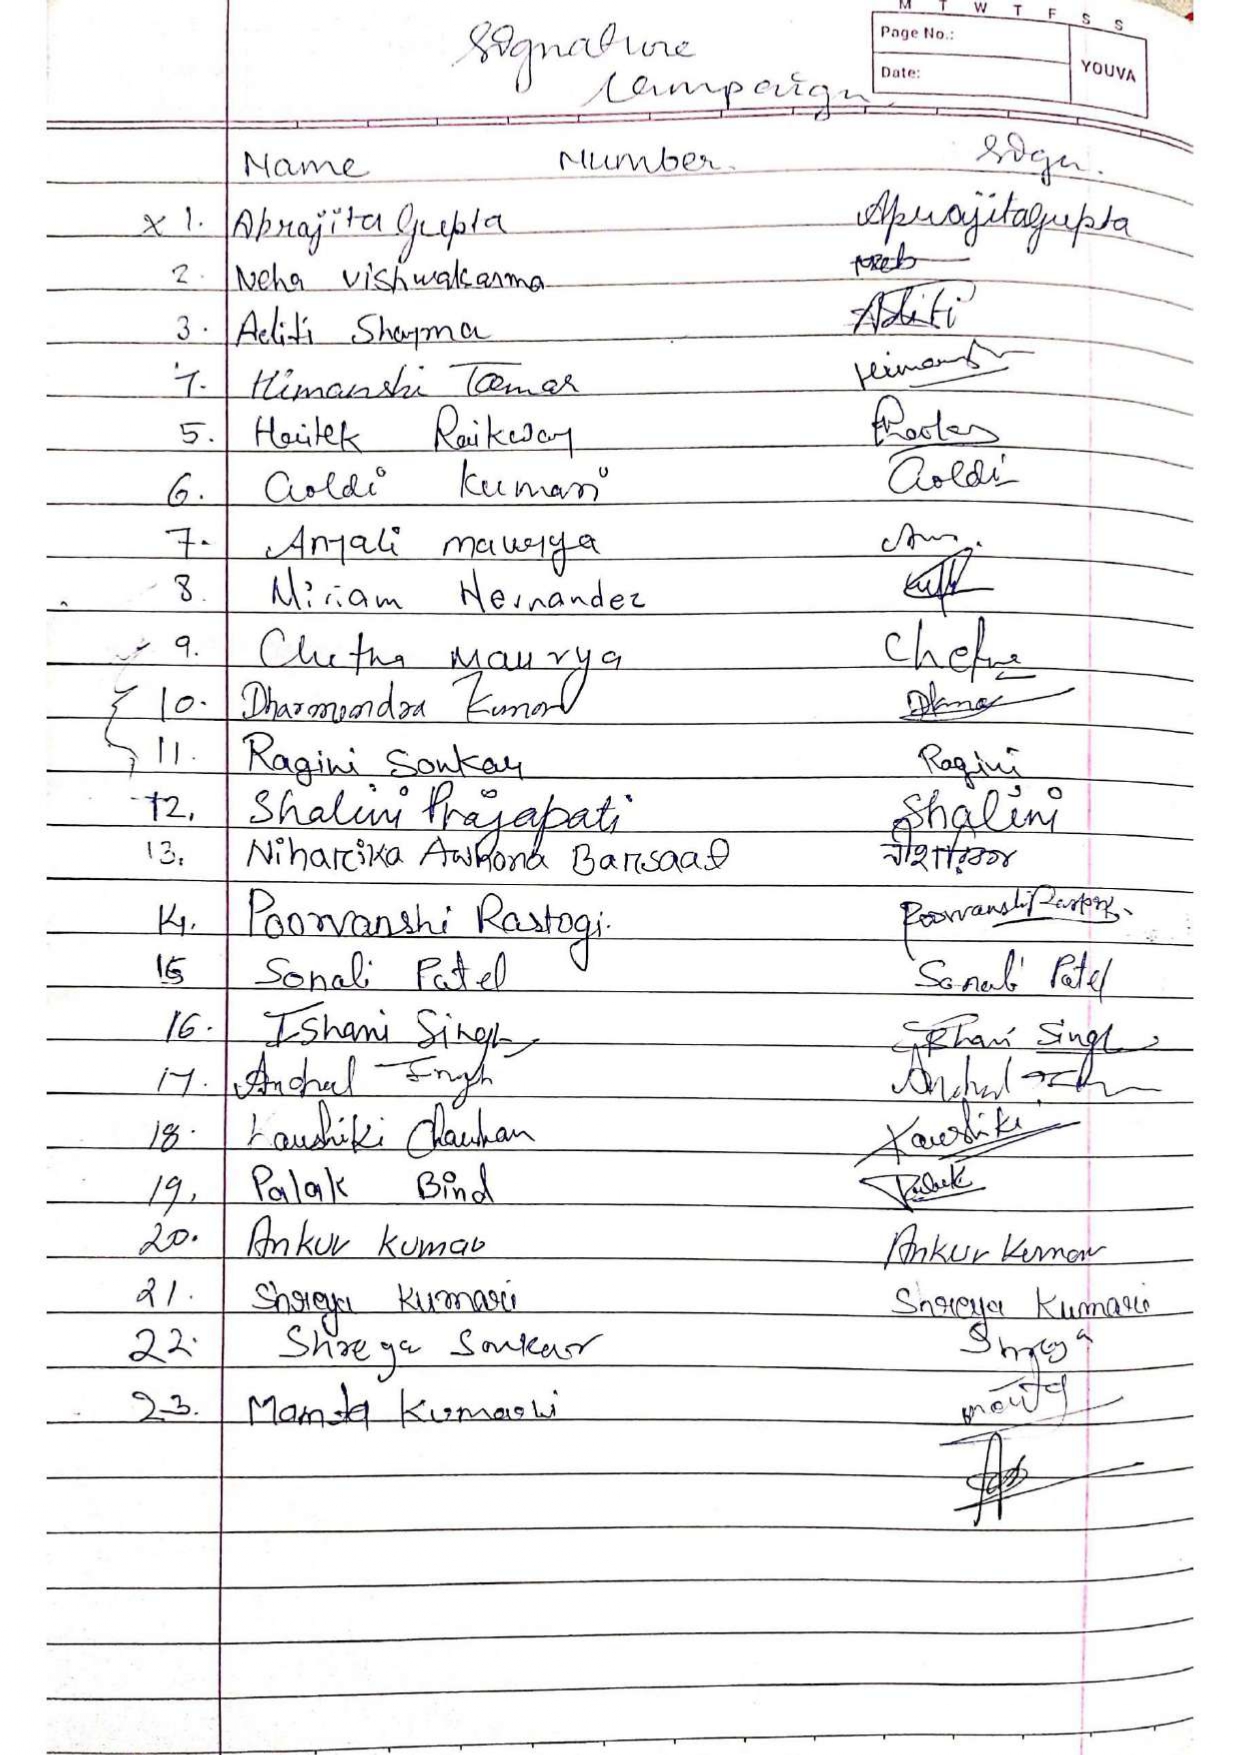 M T W T F S S
Page No.:
Date:
YOUVA
Signature
Campaign
Name Number. Sign.
x 1. Aprajita Gupta Aprajitagupta
2. Neha Vishwakarma
3. Aditi Sharma Aditi
4. Himanshi Tomar Himanshi
5. Raikwar
6. Goldi Kumari Goldi
7. Anjali Maurya
8. Miriam Hernandez
9. Chetna Maurya Chetna
10. Dharmendra Kumar
11. Ragini Sonkar Ragini
12. Shalini Prajapati Shalini
13. Niharika Bansaad
14. Poorvanshi Rastogi. Poorvanshi Rastogi.
15 Sonali Patel Sonali Patel
16. Ishani Singh Ishani Singh
17. Anchal Singh Anchal
18. Kaushiki Chauhan Kaushiki
19. Palak Bind Palak
20. Ankur Kumar Ankur Kumar
21. Shreya Kumari Shreya Kumari
22. Shreya Sonkar Shreya
23. Mamta Kumari